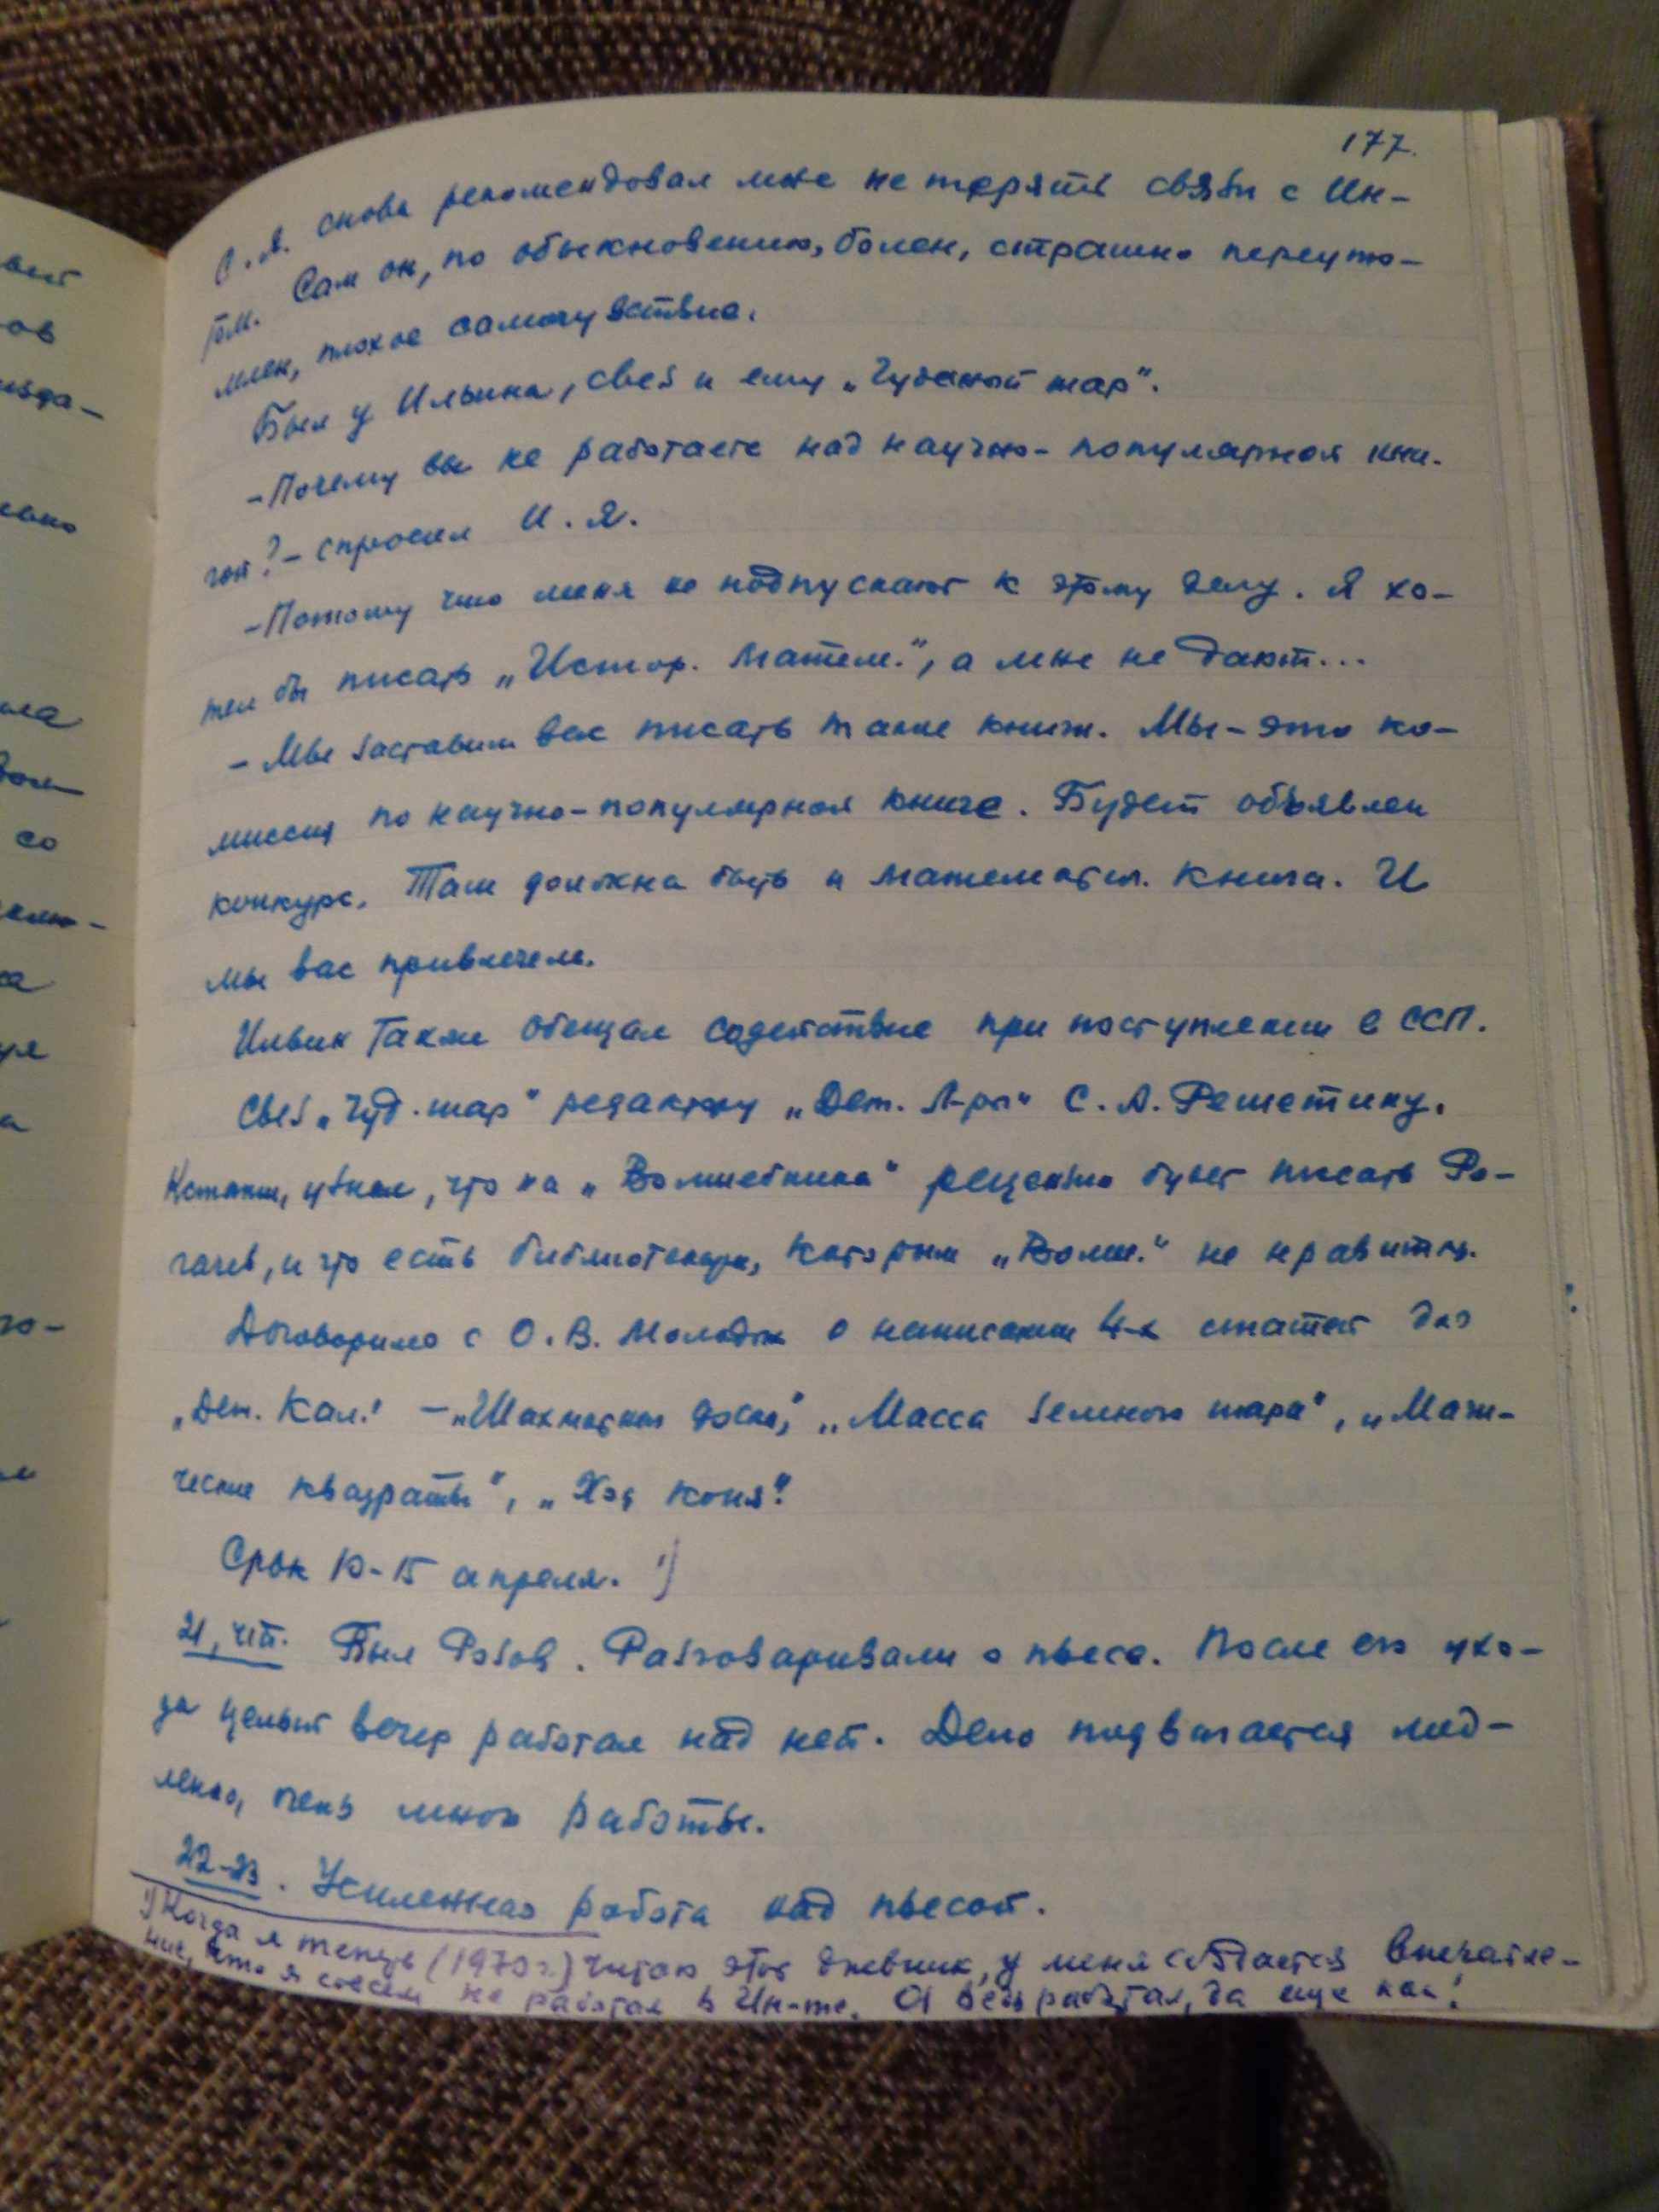 177.
С.Я. снова рекомендовал мне не терять связи с Ин-
том. Сам он, по обыкновению, болен, страшно переуто-
млен, плохое самочувствие.
Был у Ильина, свез и ему „Чудесный шар".
- Почему вы не работаете над научно-популярной кни-
гой? - спросил И. Я.
- Потому что меня не подпускают к этому делу. Я хо-
тел бы писать „Истор. матем.", а мне не дают...
- Мы заставим вас писать такие книги. Мы - это ко-
миссия по научно-популярной книге. Будет объявлен
конкурс. Там должна быть и математич. книга. И
мы вас привлечем.
Ильин также обещал содействие при поступлении в ССП.
Свез „Чуд. шар" редактору „Дет. Л-ры" С. А. Решетину.
Кстати, узнал, что на „Волшебника" рецензию будет писать Ро-
гачев, и что есть библиотекари, которым „Волш." не нравится.
Договорился с О. В. о написании 4-х статей для
„Дет. Кал." - „Шахматная доска", „Масса земного шара", „Маги-
ческие квадраты", „Ход коня".
Срок 10-15 апреля. 1)
21, чт. Был Розов. Разговаривали о пьесе. После его ухо-
да целый вечер работал над ней. Дело подвигается мед-
ленно, очень много работы.
22-23. Усиленная работа над пьесой.
1) Когда я теперь (1970 г.) читаю этот дневник, у меня создается впечатле-
ние, что я совсем не работал в Ин-те. А ведь работал, да еще как!
вый
ов
изда-
со
са
а
го-